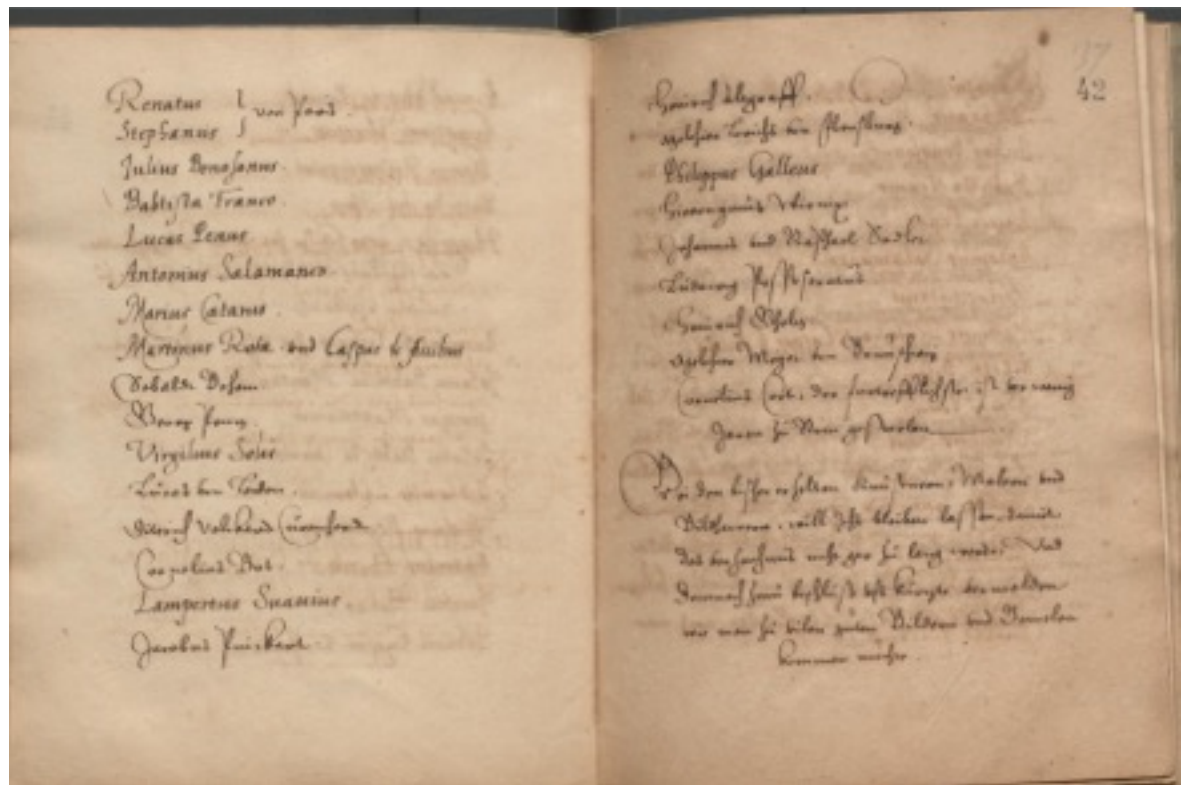 Renatus
Stephanus } von
Julius Bonosonus.
Babtista Franco.
Lucas Penus
Antonius Salamanca
Marius Catarus.
Martinus Rota und Caspar
Sebaldt Behem
Georg Penz.
Virgilius Solis
Lucas von Leiden.
Volckard
Cornelius Bos.
Lampertus Suavius.
Jacobus
42
Heinrich Aldegraff.
Melchior Lorichs von Flensburg.
Philippus Galleus
Hieronymus Wierix
Johannes und Raphael Sadler
Ludwig
Heinrich Scholtz
Melchior Meyer von
Cornelius Cort, der ist vor wenig
Jaren zu Rom gestorben
Bei den bisher erzelten Künstnern, Malern und
Bildhauern, will Ichs bleiben lassen, damit
das nicht gar zu lang werde, Und
demnach zum beschluß aufs kürzste vermelden
wie man zu vilen guten Bildern und Gemelen
kommen möchte.